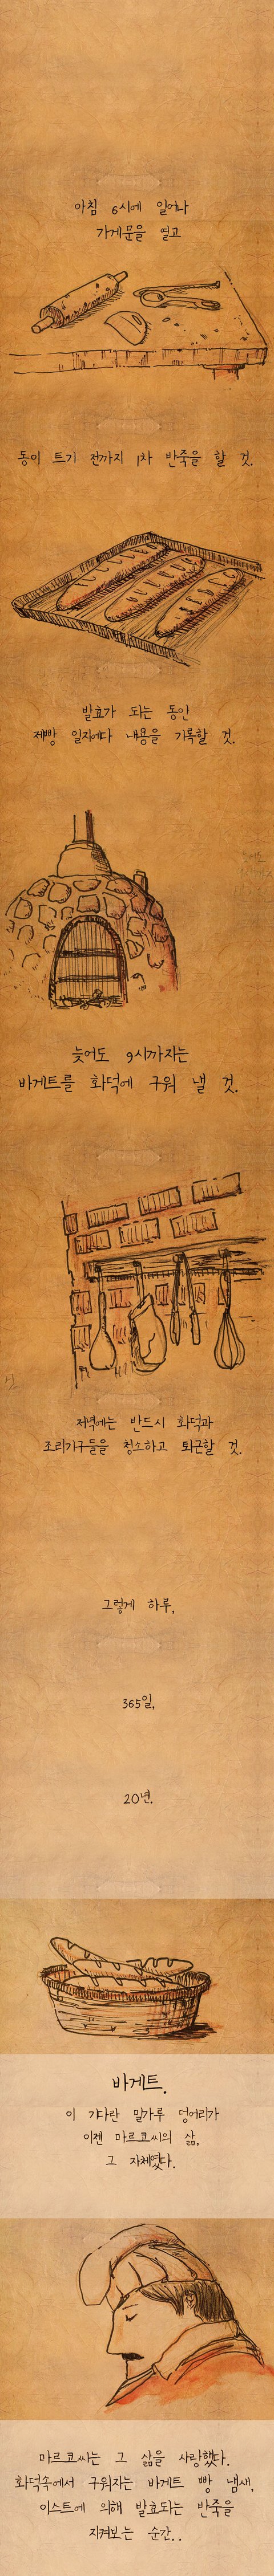 아침 6시에 일어나
가게문을 열고
동이 트기 전까지 1차 반죽을 할 것.
발효가 되는 동안
제빵 일지에다 내용을 기록할 것.
늦어도 9시까지는
바게트를 화덕에 구워 낼 것.
저녁에는 반드시 화덕과
조리기구들을 청소하고 퇴근할 것.
그렇게 하루,
365일,
20년.
바게트.
이 기다란 밀가루 덩어리가
이젠 마르코씨의 삶,
그 자체였다.
마르코씨는 그 삶을 사랑했다.
화덕속에서 구워지는 바게트 빵 냄새,
이스트에 의해 발효되는 반죽을
지켜보는 순간..